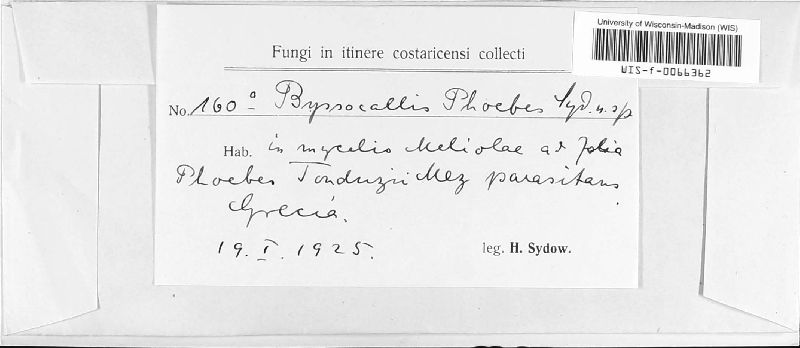 University of Wisconsin-Madison (WIS)
WIS-f-0066362
Fungi in itinere costaricensi collecti
No. 160a Byssocallis Phoebes Syd. n. sp
Hab. in mycelio Meliolae ad folia
Phoebes Tonduzii Mez parasitans
Grecia.
19. I. 1925.
leg. H. Sydow.